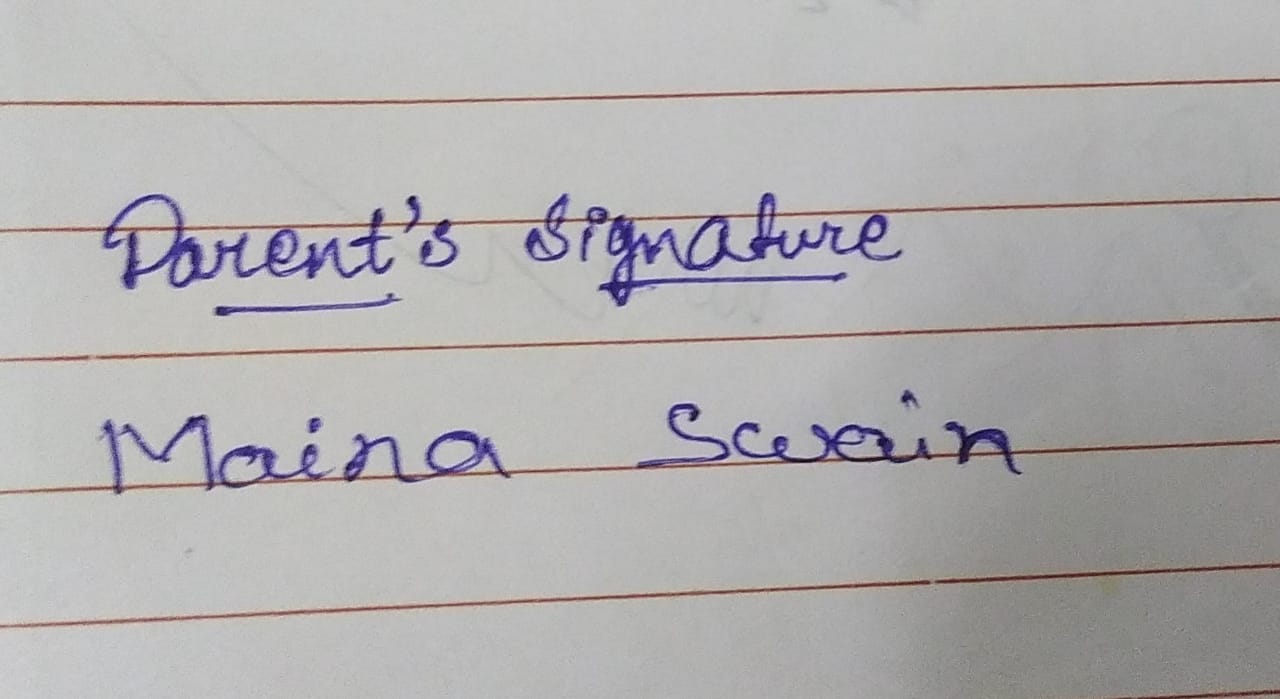 Parent's Signature
Maina Swain